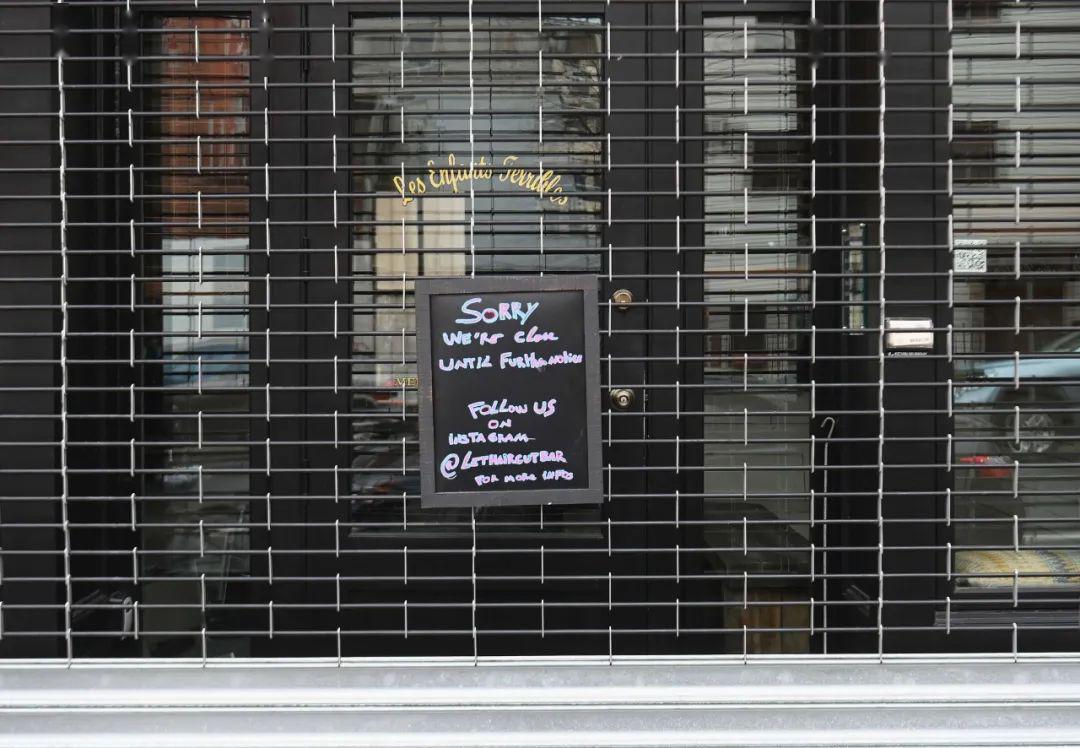 Les Enfants Terribles
SORRY
WE'RE CLOSE
UNTIL FURTHER NOTICE
MEN
FOLLOW US
ON
INSTAGRAM
@LETHAIRCUTBAR
FOR MORE INFOS